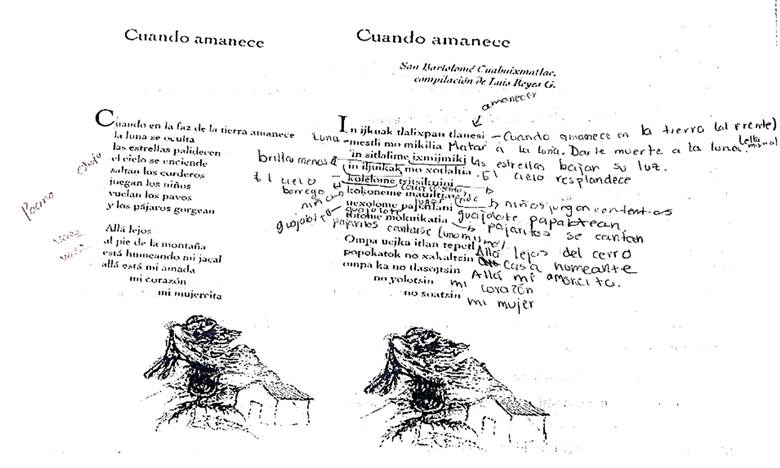 Cuando amanece
Cuando en la faz de la tierra amanece
la luna se oculta
las estrellas palidecen
el cielo se enciende
saltan los corderos
juegan los niños
vuelan los pavos
y los pájaros gorgean
Allá lejos
al pie de la montaña
está humeando mi jacal
allá está mi amada
mi corazón
mi mujercita
Poema
Cuando amanece
San Bartolomé Cuahuixmatlac,
compilación de Luis Reyes G.
amanecer
In ijkuak tlalixpan tlanesi - Cuando amanece en la tierra (al frente)
Luna - mestli mo mikilia Matar a la luna. Darle muerte a la luna.
brilla menos in sitlalime ixmijmiki las estrellas bajan su luz.
El cielo in iljuikak mo xotlaltia. El cielo resplandece
borrego kolelome tzitsikuini
niño kokoneme niños jugan contentos
guajolote uexolome guajolote papalotean.
mokuikatia pajaritos se cantan
pajaritos cantarse (uno mismo)
Ompa uejka itlan tepetl Allá lejos del cerro
popokatok no xakaltsin casa humeante
ompa ka no tlasojtsin Allá mi amorcito.
no yolotsin mi corazón
no soatsin mi mujer